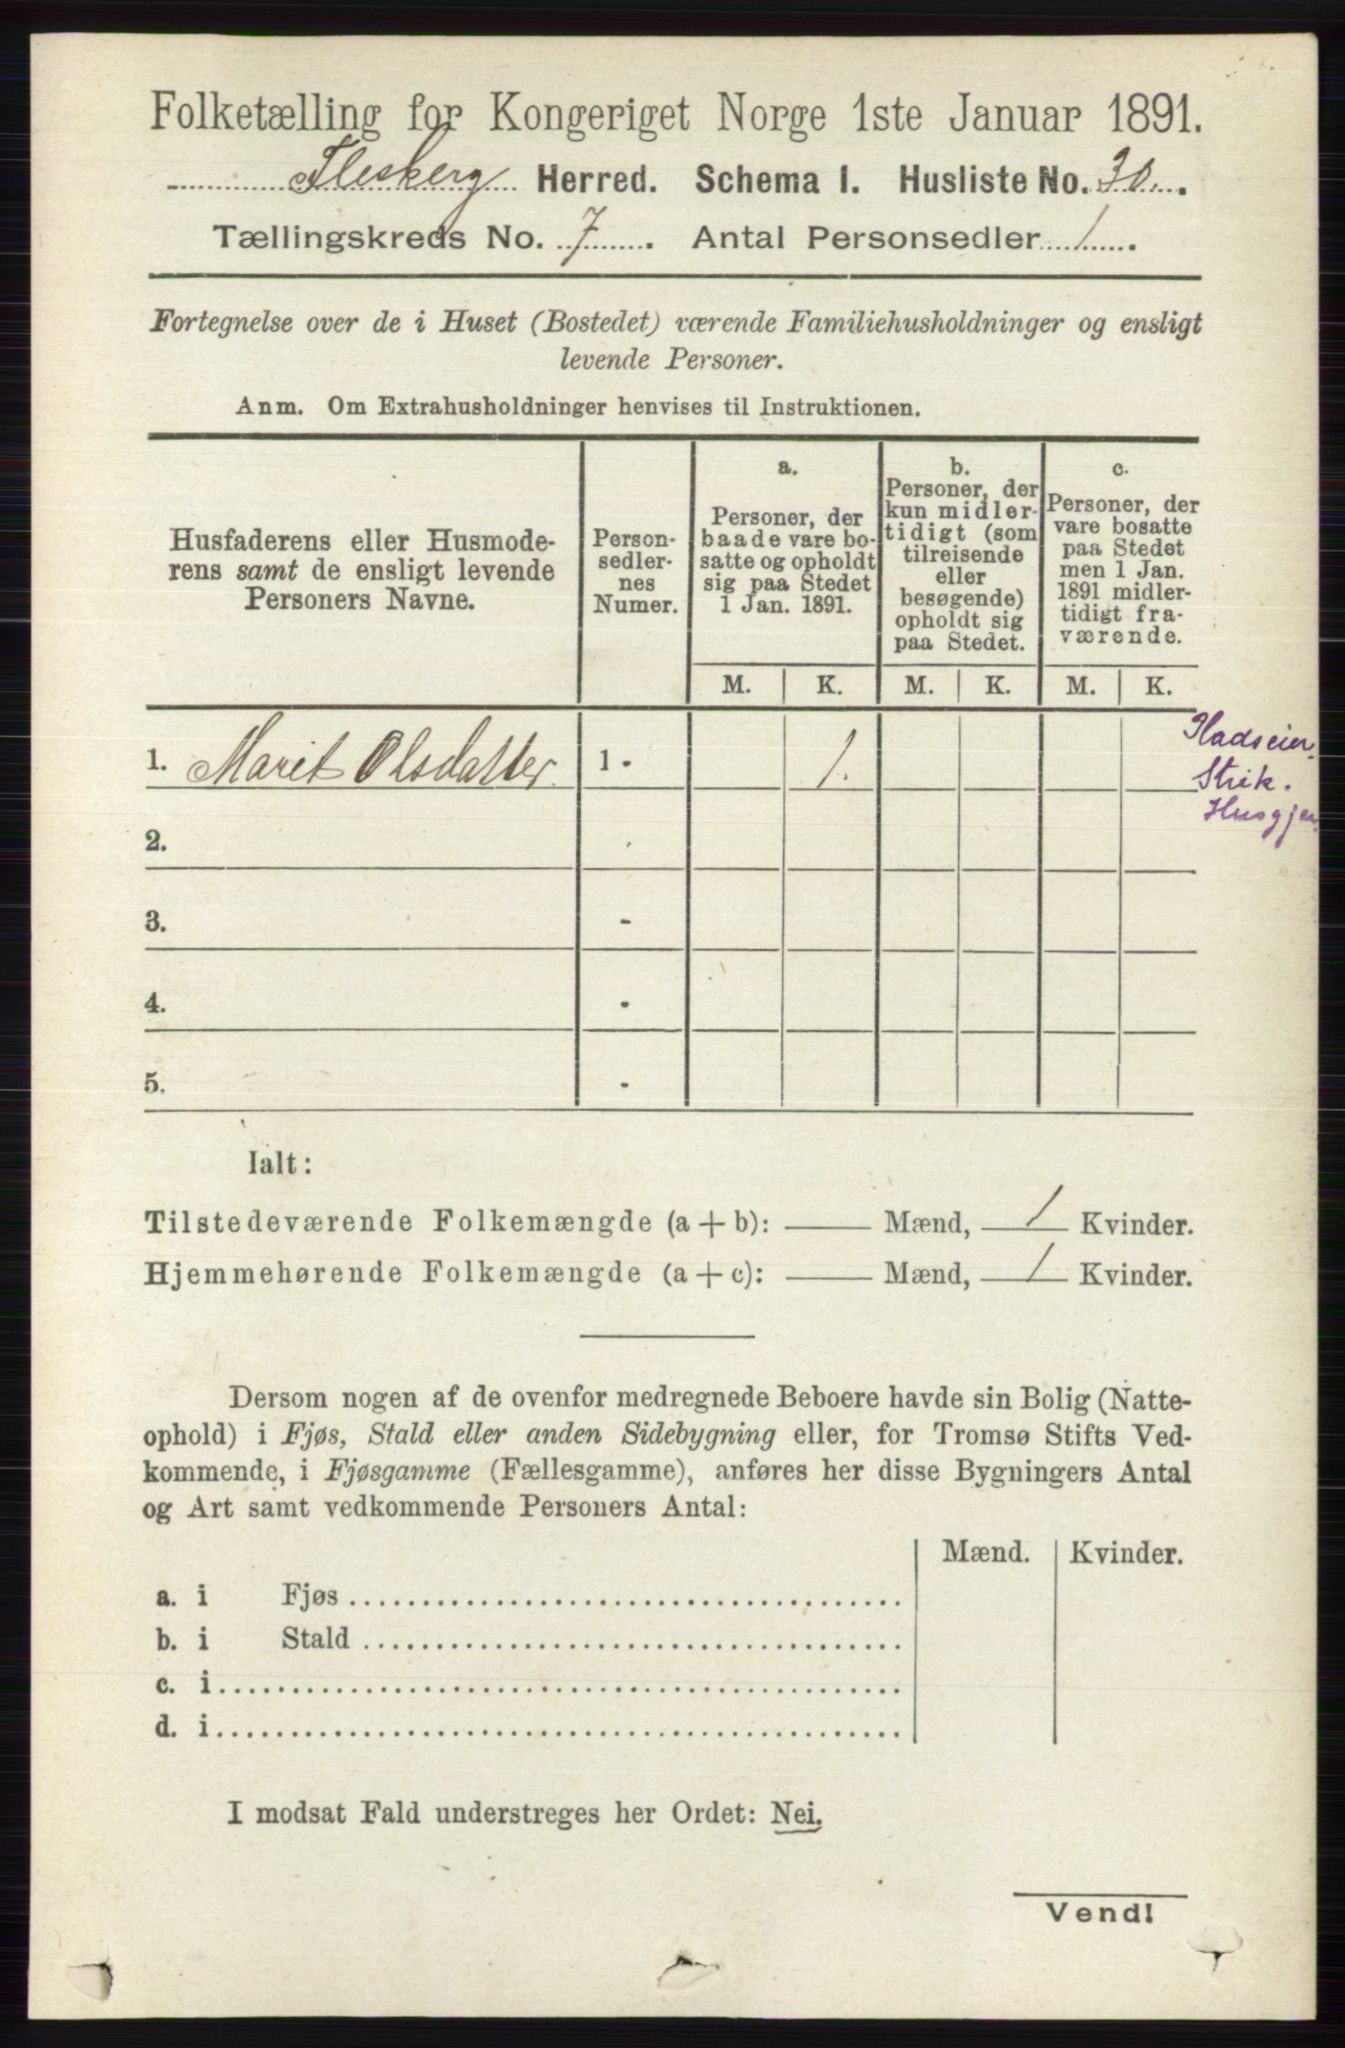 Folketælling for Kongeriget Norge 1ste Januar 1891.
Flesberg Herred. Schema 1. Husliste No. 30.
Tællingskreds No. 7. Antal Personsedler 1.
Fortegnelse over de i Huset (Bostedet) værende Familiehusholdninger og ensligt
levende Personer.
Anm. Om Extrahusholdninger henvises til Instruktionen.
Husfaderens eller Husmode-
rens samt de ensligt levende
Personers Navne.
Person-
sedler-
nes
Numer.
a.
Personer, der
baade vare bo-
satte og opholdt
sig paa Stedet
1 Jan. 1891.
b.
Personer, der
kun midler-
tidigt (som
tilreisende
eller
besøgende)
opholdt sig
paa Stedet.
c.
Personer, der
vare bosatte
paa Stedet
men 1 Jan.
1891 midler-
tidigt fra-
værende.
M. K. M. K. M. K.
1. Marit Olsdatter 1 - 1.
Pladseier
Strik.
Husgjer
2. -
3. -
4. -
5. -
Ialt:
Tilstedeværende Folkemængde (a + b): — Mænd, 1 Kvinder.
Hjemmehørende Folkemængde (a + c): — Mænd, 1 Kvinder.
Dersom nogen af de ovenfor medregnede Beboere havde sin Bolig (Natte-
ophold) i Fjøs, Stald eller anden Sidebygning eller, for Tromsø Stifts Ved-
kommende, i Fjøsgamme (Fællesgamme), anføres her disse Bygningers Antal
og Art samt vedkommende Personers Antal:
Mænd. Kvinder.
a. i Fjøs
b. i Stald
c. i
d. i
I modsat Fald understreges her Ordet: Nei.
Vend!